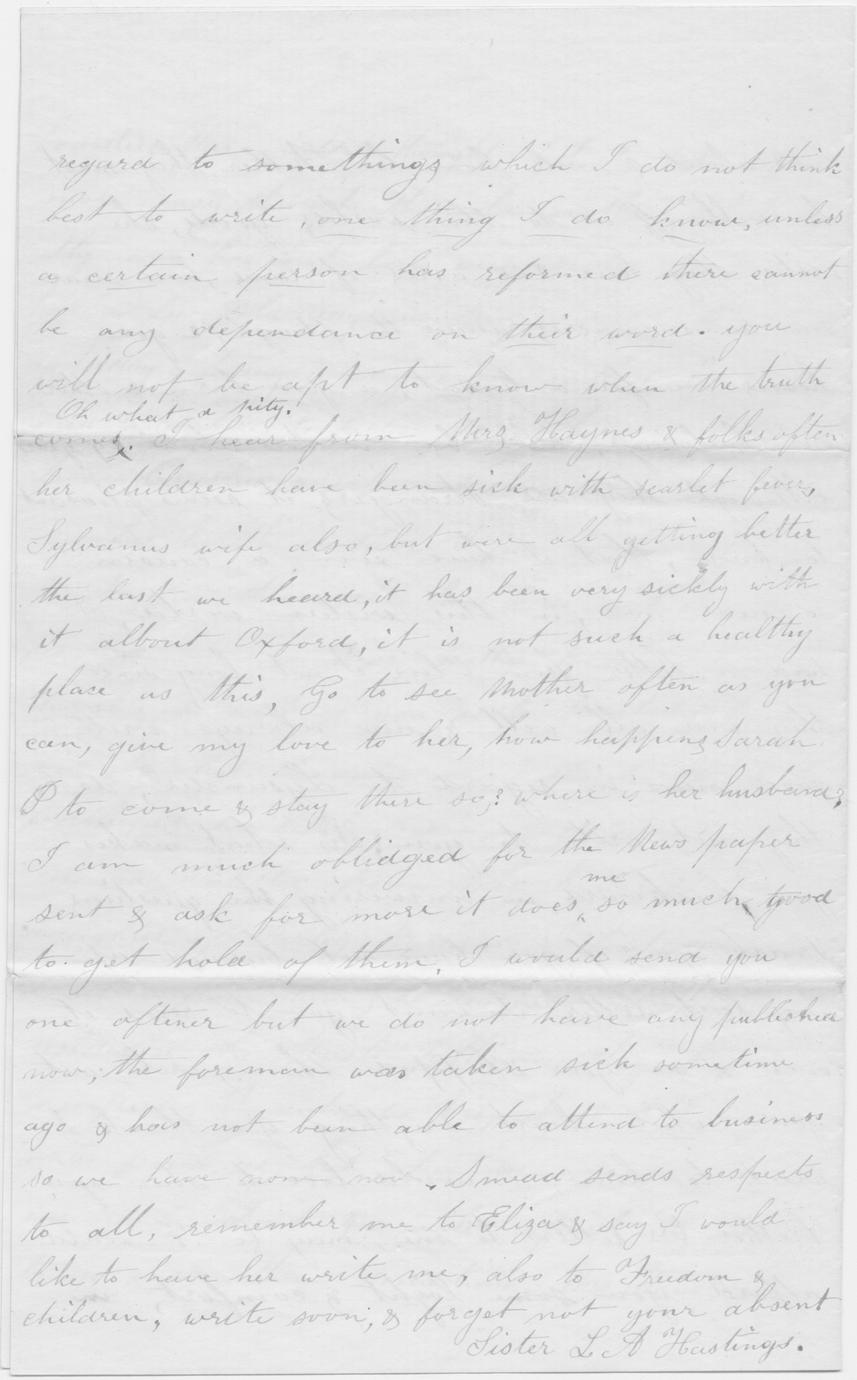 regard to somethings which I do not think
best to write, one thing I do know, unless
a certain person has reformed there cannot
be any dependance on their word. you
will not be apt to know when the truth
Oh what a pity.
comes. I hear from Mrs Haynes & folks often
her children have been sick with scarlet fever,
Sylvanus wife also, but were all getting better
the last we heard, it has been very sickly with
it albout Oxford, it is not such a healthy
place as this, Go to see Mother often as you
can, give my love to her, how happens Sarah
P to come & stay there so? where is her husband?
I am much oblidged for the News paper
me
sent & ask for more it does so much good
to get hold of them, I would send you
one oftener but we do not have any published
now, the foreman was taken sick sometime
ago & has not been able to attend to business
so we have none now. Smead sends respects
to all, remember me to Eliza & say I would
like to have her write me, also to Freedom &
children, write soon, & forget not your absent
Sister L A Hastings.